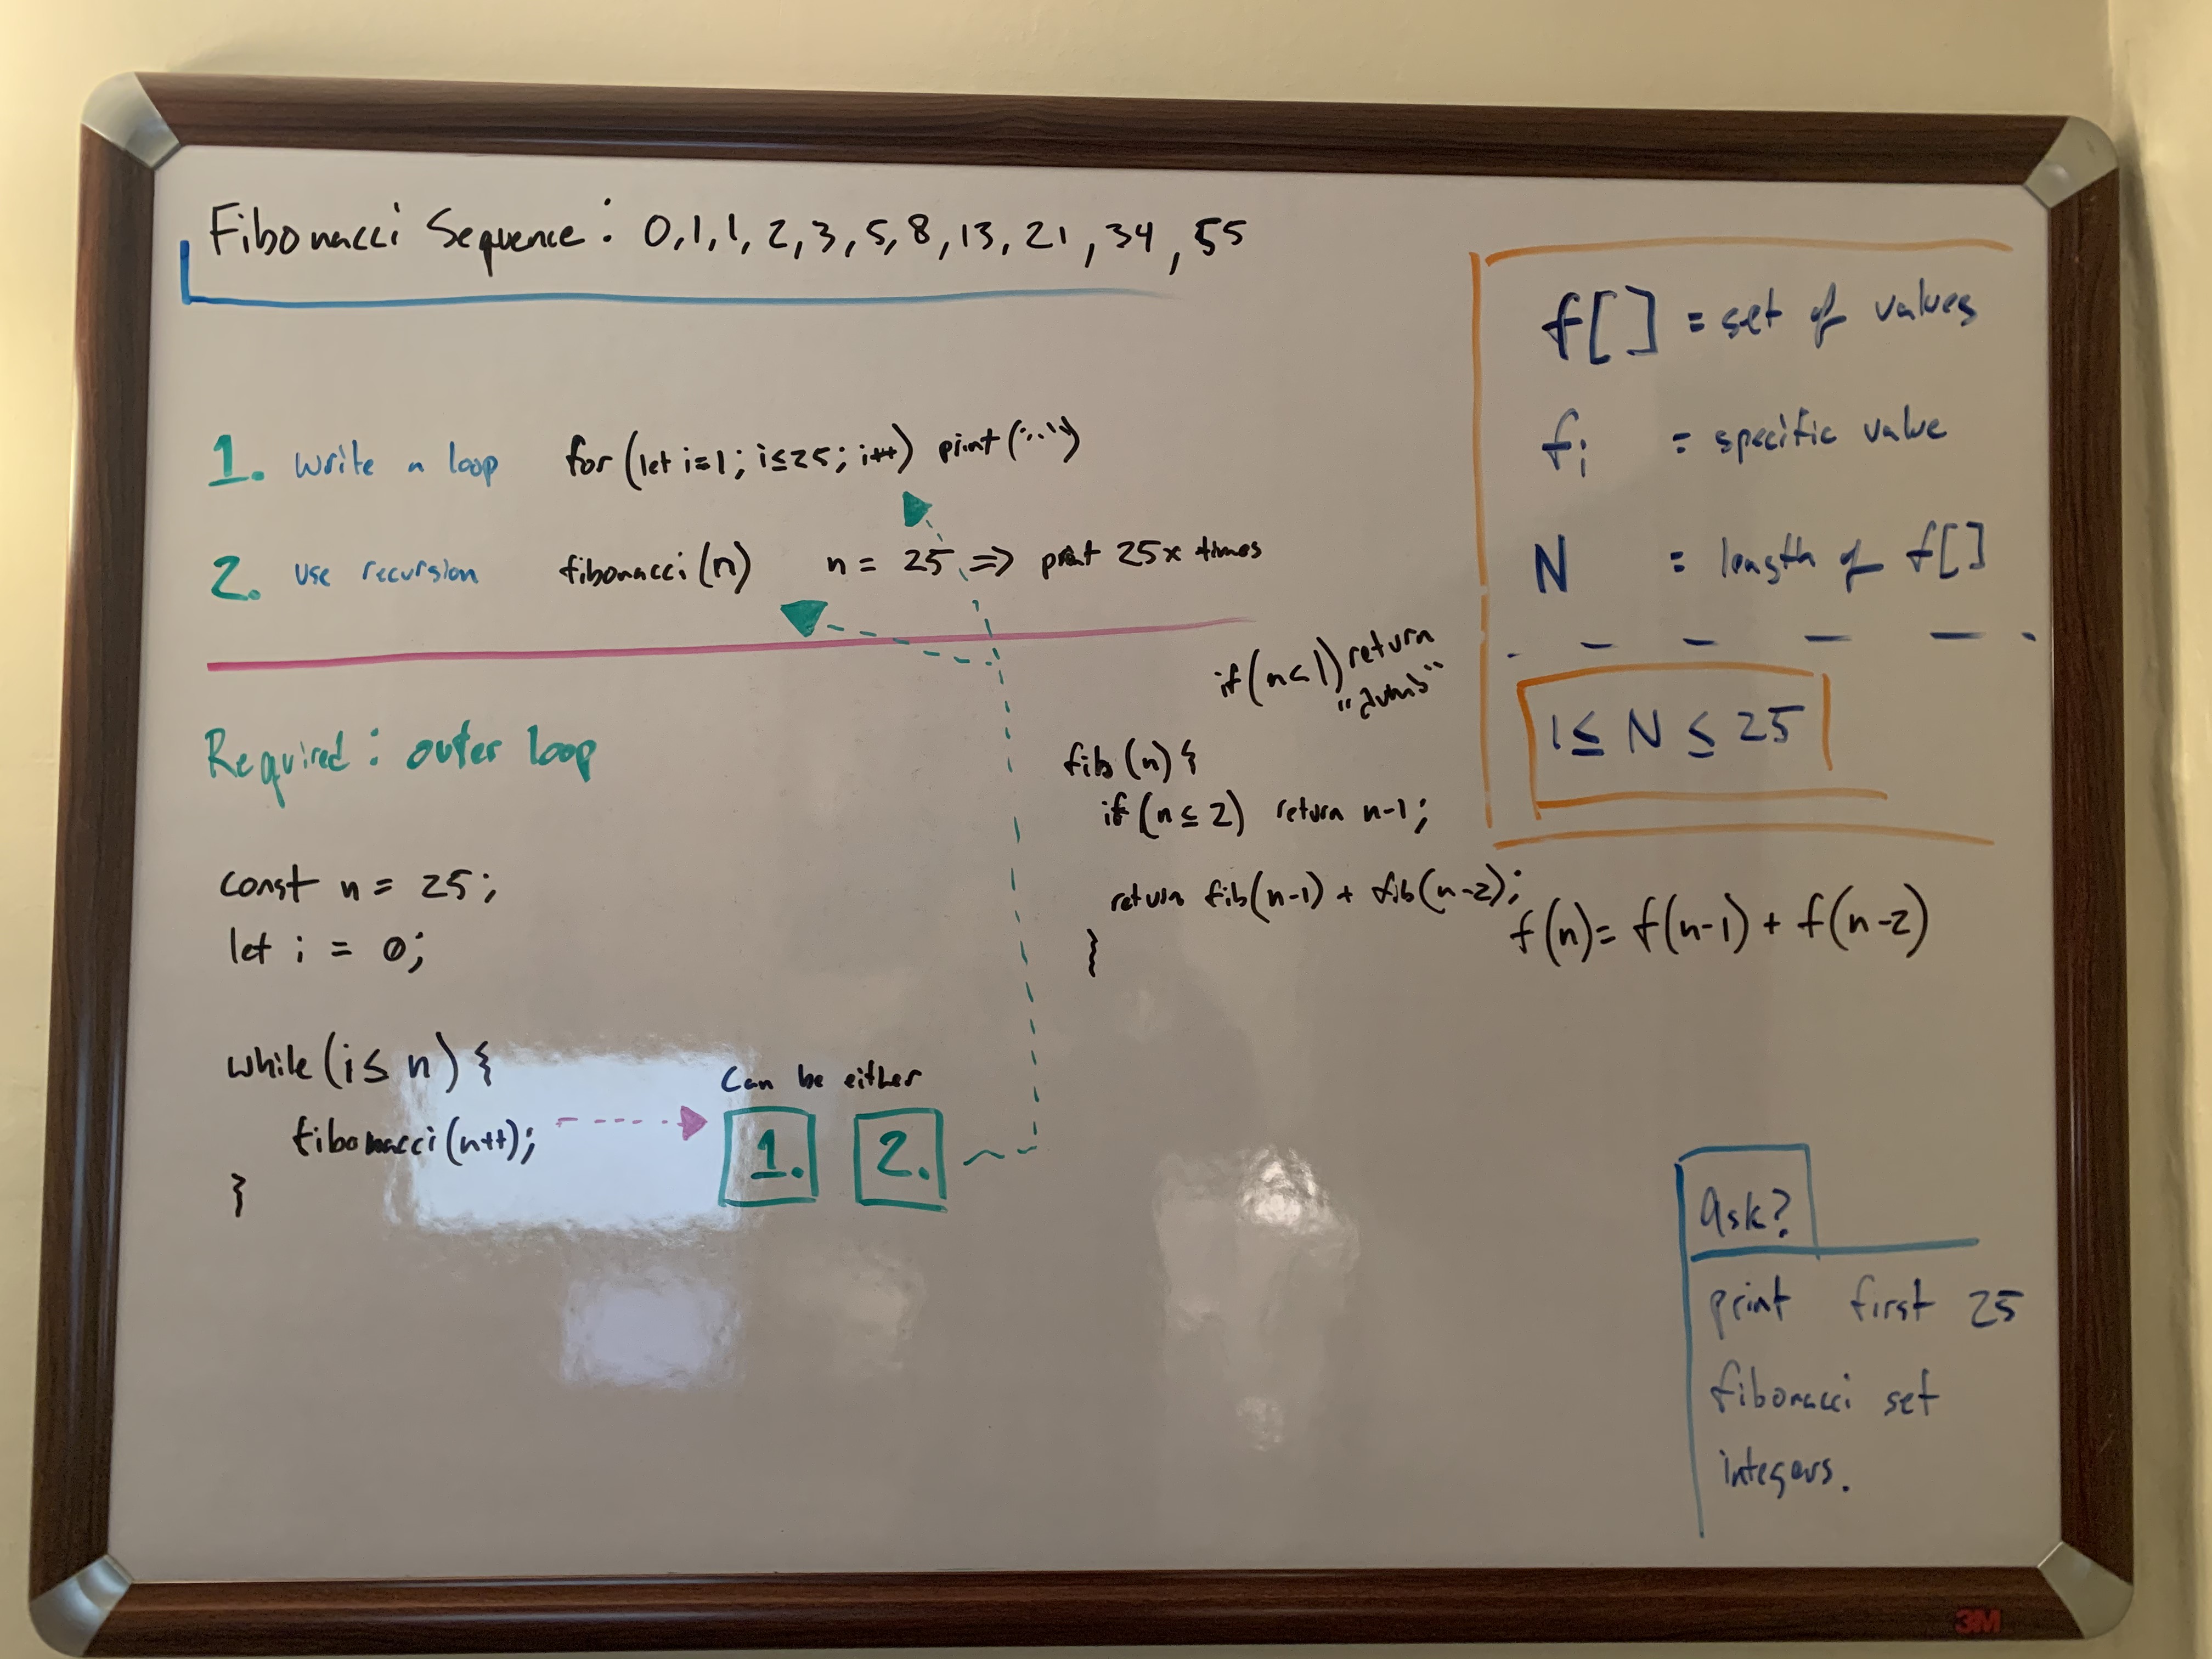 Fibonacci Sequence: 0,1,1,2,3,5,8,13,21,34,55
1. write a loop for (let i=1; i≤25; i++) print("...")
2. use recursion fibonacci(n) n = 25 => print 25x times
Required: outer loop
const n = 25;
let i = 0;
while (i ≤ n) {
fibonacci(n++);
}
Can be either
1. 2.
if (n<1) return
"dumb"
fib (n) {
if (n ≤ 2) return n-1;
return fib(n-1) + fib(n-2);
}
f[] = set of values
fi = specific value
N = length of f[]
1 ≤ N ≤ 25
f(n) = f(n-1) + f(n-2)
ask?
print first 25
fibonacci set
integers.
3M